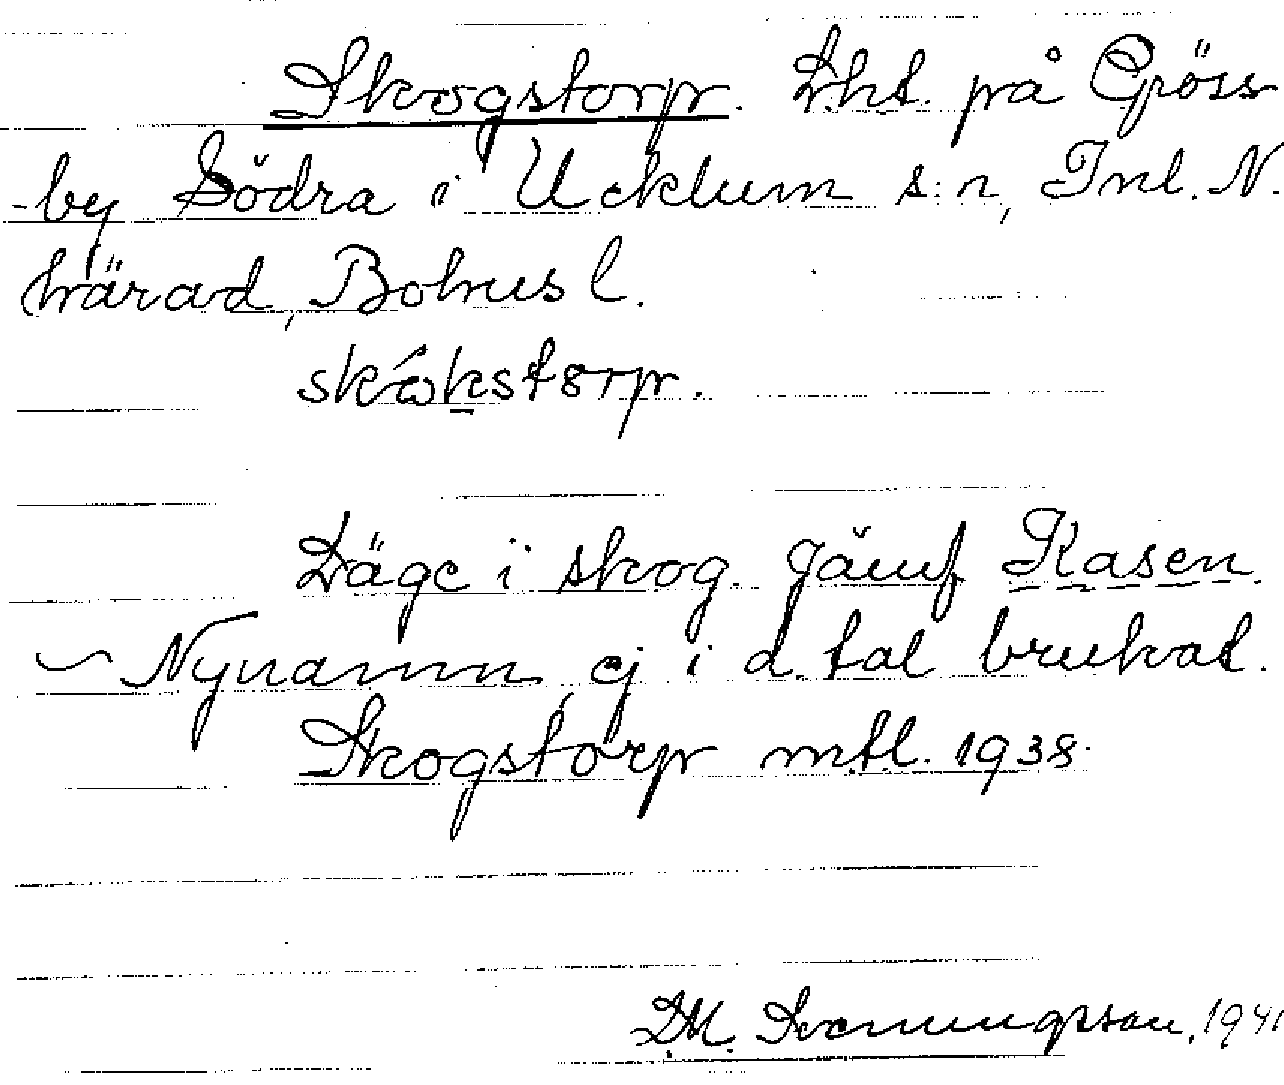 Skogstorp. Lht. på Grössby
-by Södra i Ucklum s:n, Inl. N.
härad, Bohusl.
skógkstorp.
Läge i skog. Jämf Kasen.
~ Nynamn, ej i d. tal brukat.
Skogstorp mtl. 1938.
D.M. Svenungsson, 1941